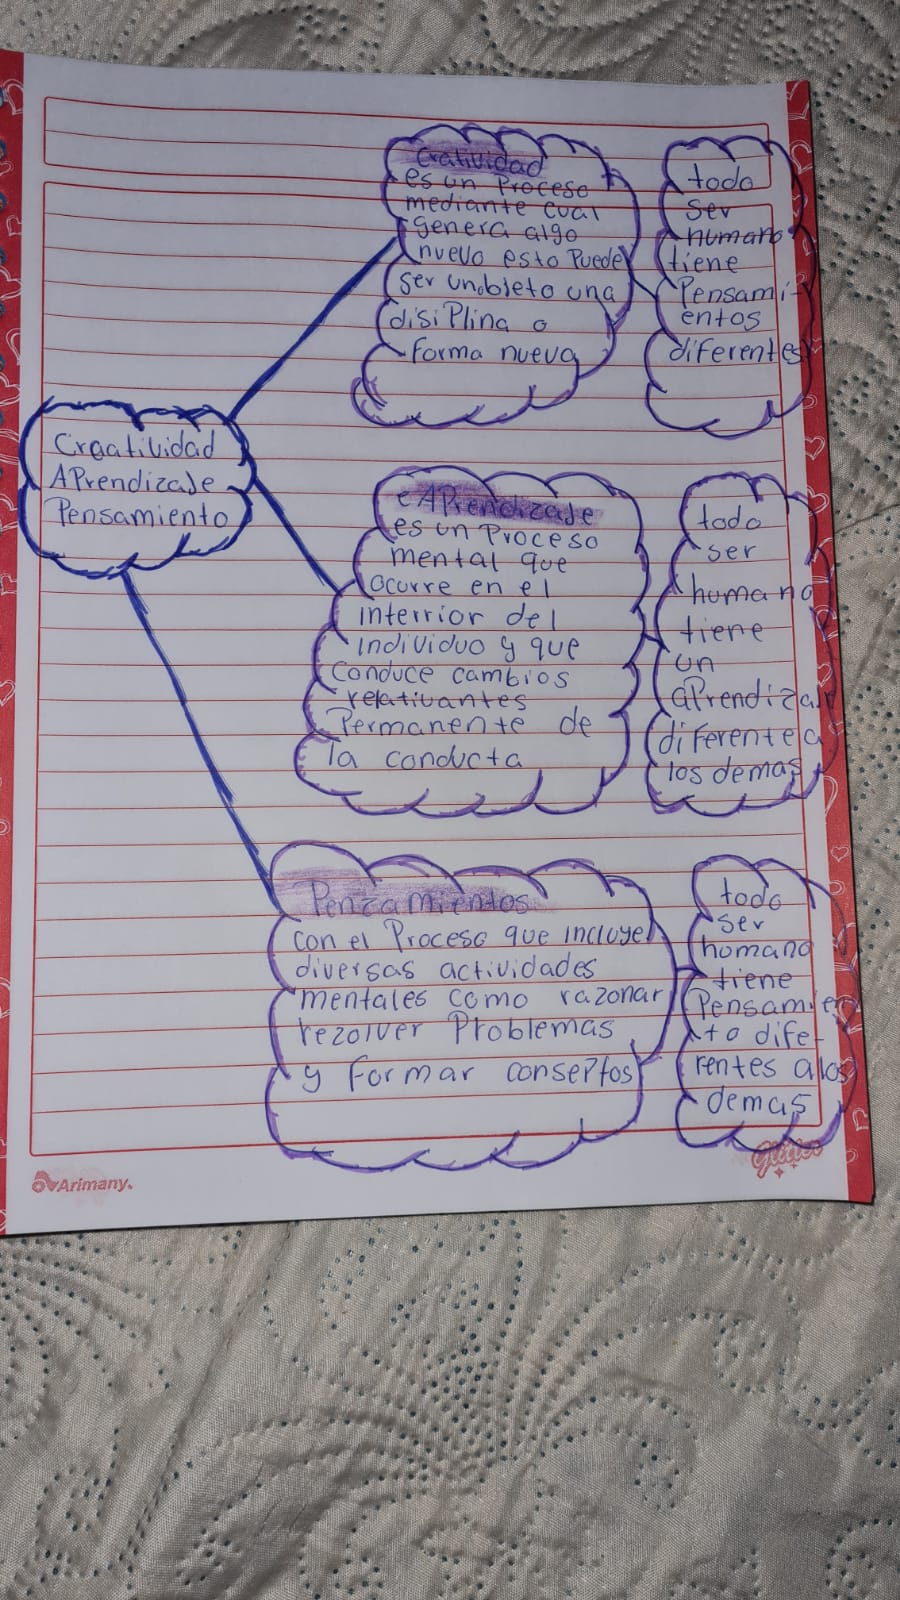 Creatividad
APrendizaje
Pensamiento
Cratividad
es un Proceso
mediante cual
genera algo
nuevo esto Puede
ser un obleto una
disiPlina o
forma nueva
todo
ser
humano
tiene
Pensami-
entos
diferentes
e APrendizaje
es un Proceso
mental que
ocurre en el
interrior del
individuo y que
conduce cambios
relativantes
Permanente de
la conducta
todo
ser
humano
tiene
un
aPrendizaj
diferente a
los demas
Penzamientos
con el Proceso que incluye
diversas actividades
mentales como razonar
rezolver Problemas
y formar conseptos
todo
ser
homano
tiene
Pensamien
to dife-
rentes a los
demas
Arimany.
Glitter